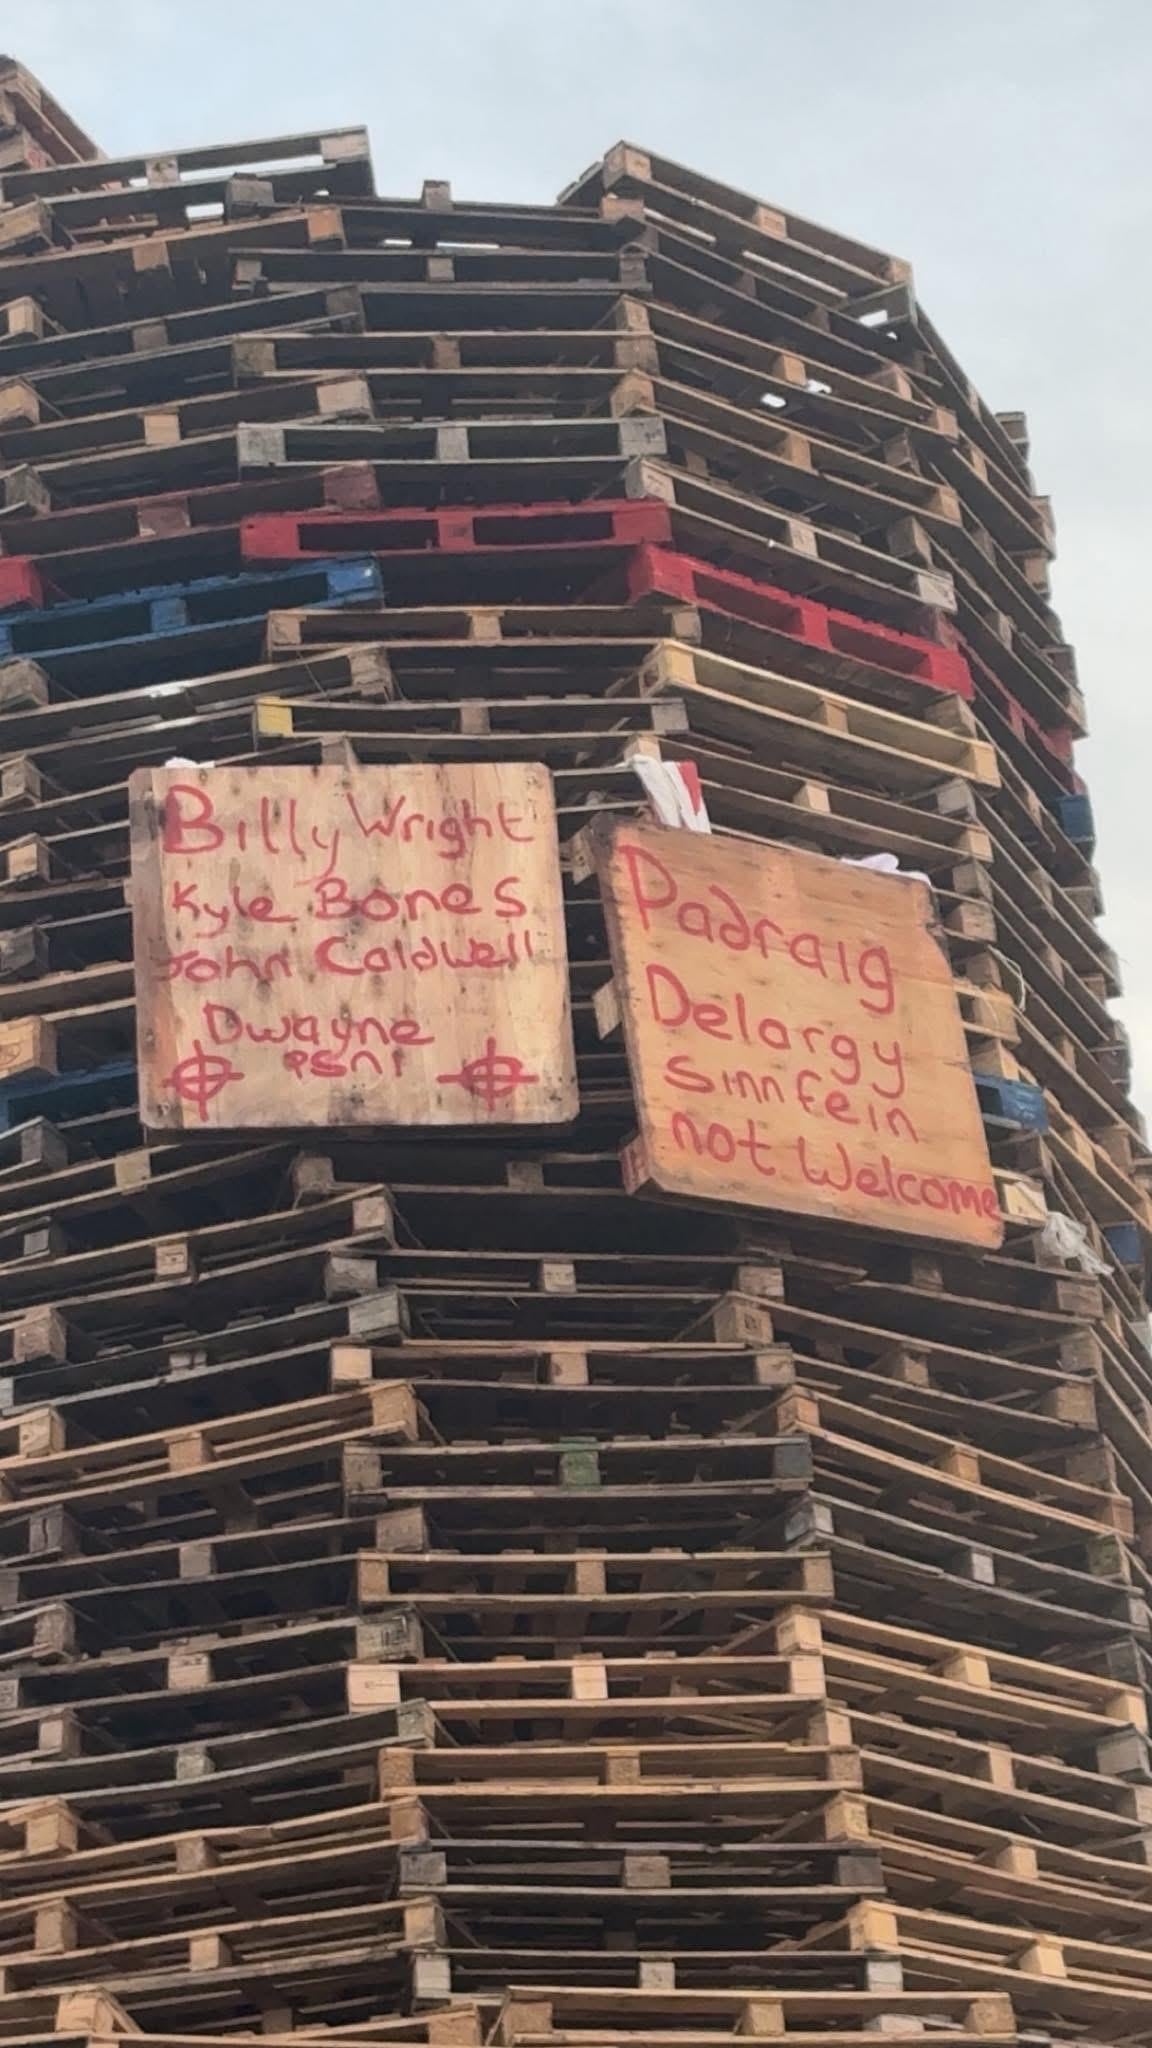 Billy Wright
Kyle Bones
John Caldwell
Dwayne
PSNI
Padraig
Delargy
Sinn fein
not Welcome